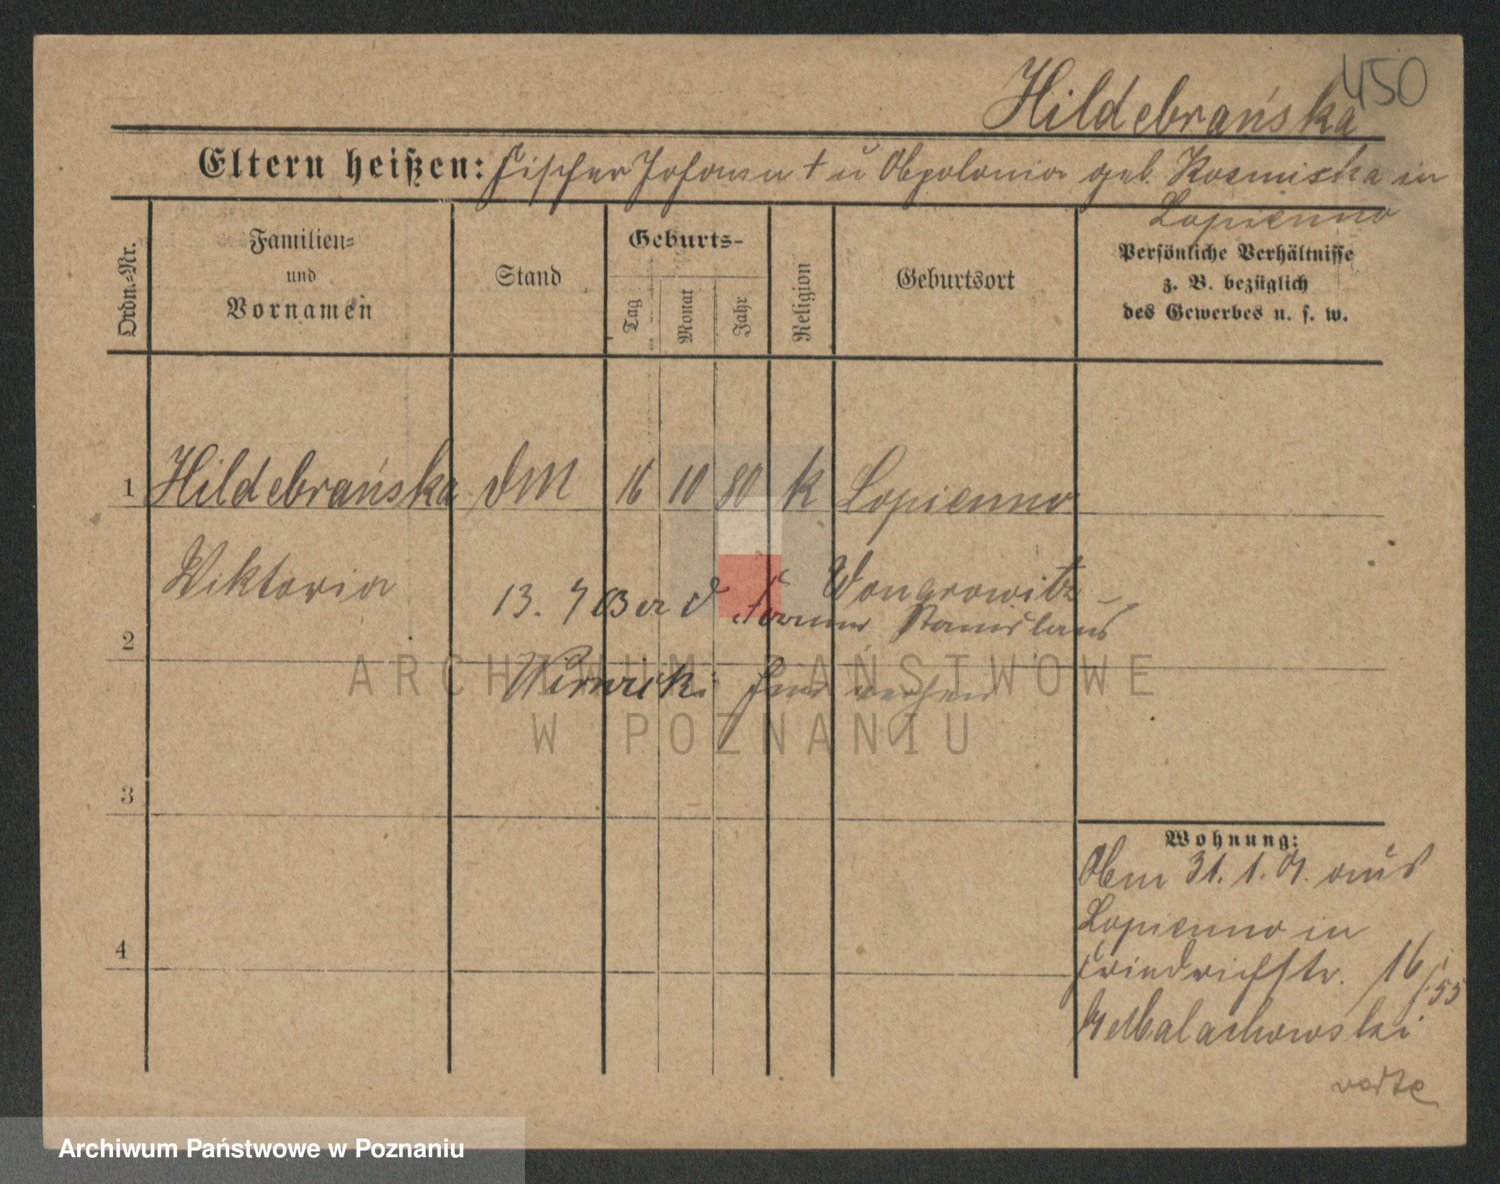 450
Hildebrańska
Eltern heißen: Fischer Johann † u Apolonia geb. Kosmicka in
Lopienno
Ordn.-Nr.
Familien-
und
Vornamen
Stand
Geburts-
Tag
Monat
Jahr
Religion
Geburtsort
Persönliche Verhältnisse
z. B. bezüglich
des Gewerbes u. s. w.
1 Hildebrańska DM 16 10 80 k Lopienno
Wiktoria
Wongrowitz
13. 7 03 er d Stanislaus
2
ARCHIWUM PAŃSTWOWE
W POZNANIU
3
Wohnung:
Am 31. 1. aus
Lopienno in
Friedrichstr. 16
Malachowski
4
verte
Archiwum Państwowe w Poznaniu